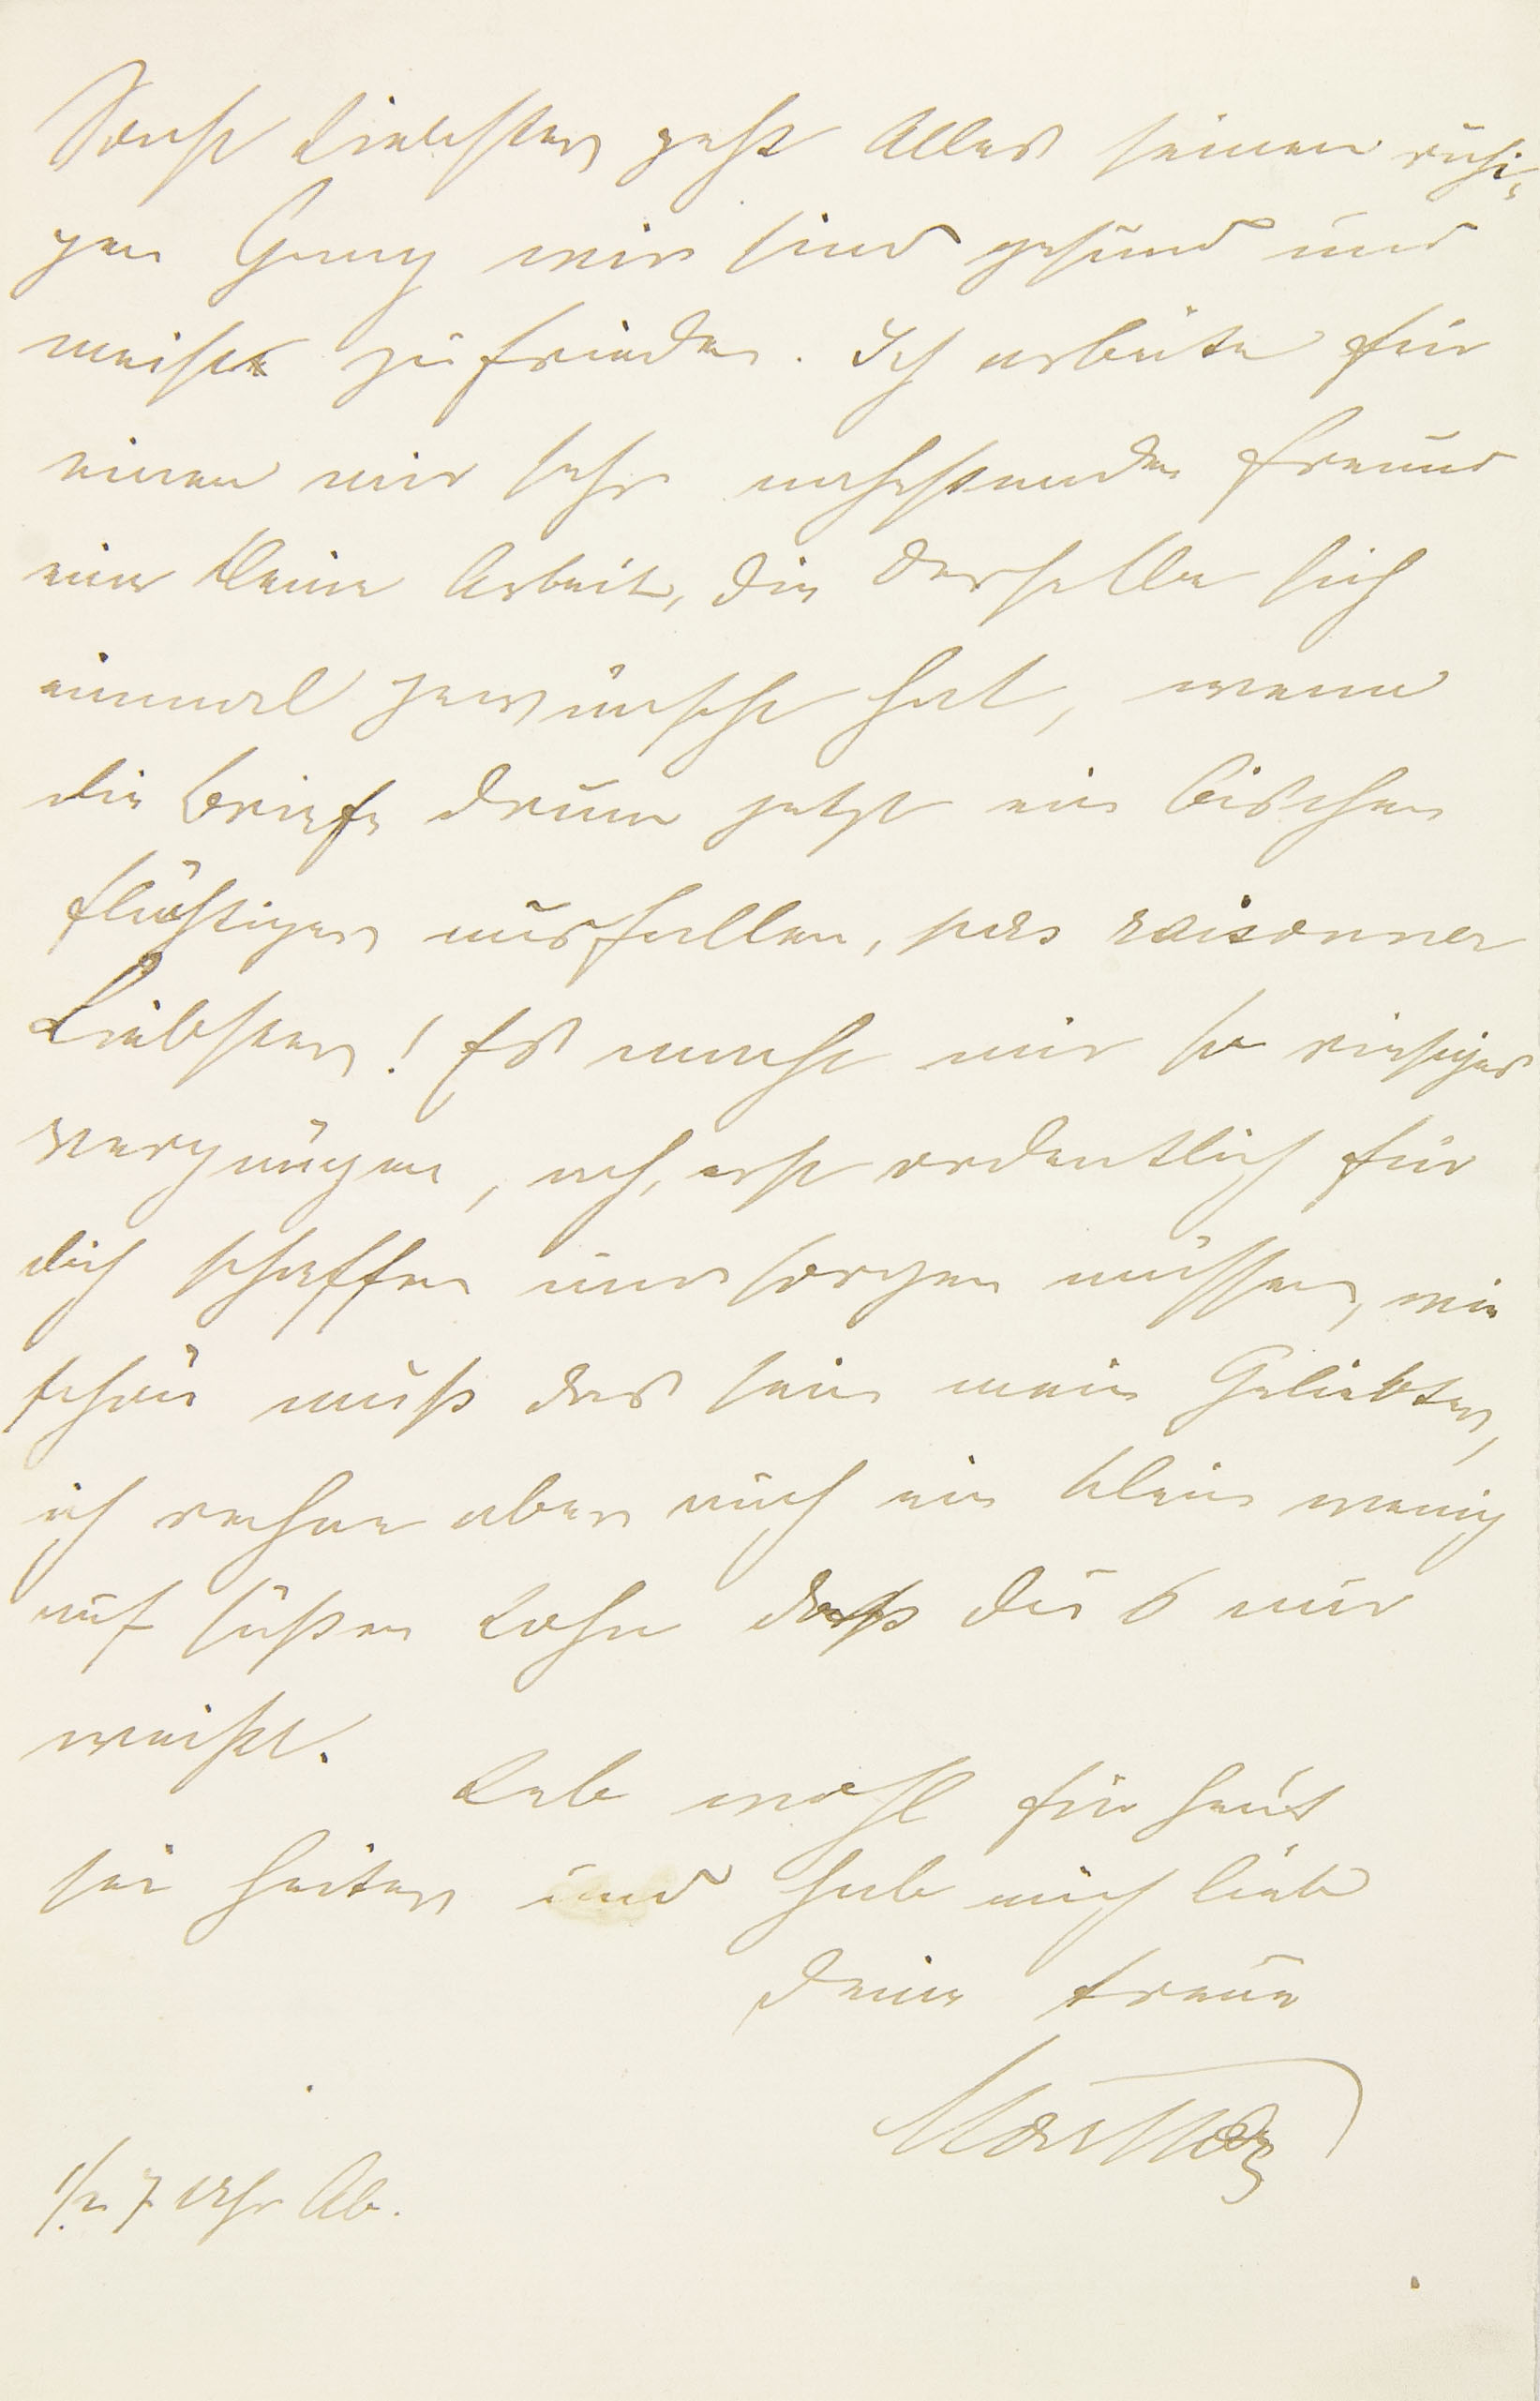 Sonst Liebster geht Alles seinen ruhi-
gen Gang wir sind gesund und
meist zufrieden. Ich arbeite für
einen mir sehr nahestehenden Freund
eine kleine Arbeit, die derselbe sich
einmal gewünscht hat, wenn
die Briefe drum jetzt ein bischen
flüchtiger ausfallen, pas raisonner
Liebster! Es macht mir so riesiges
Vergnügen, ach, erst ordentlich für
dich schaffen und sorgen müssen, wie
schön muß das sein mein Geliebter,
ich rechne aber auch ein klein wenig
auf süßen Lohn daß du's nur
weißt.
Leb wohl für heut
sei heiter und hab mich lieb
Deine treue
Martha
1/2 7 Uhr Ab.